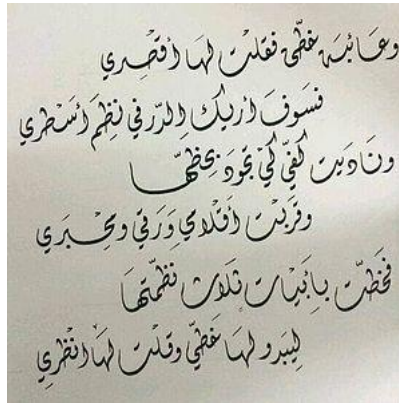 وعَائبة خطّي فقلت لها أقصِري
فسَوفَ أريك الدّر في نظم أسْطري
ونَاديت كفّي كي تجودَ بخطّها
وقربت أقلامي وَرقي ومحْبَري
فخطّت بأبيَات ثلاث نظمتها
ليَبدو لها خطّي وقلت لها انْظري